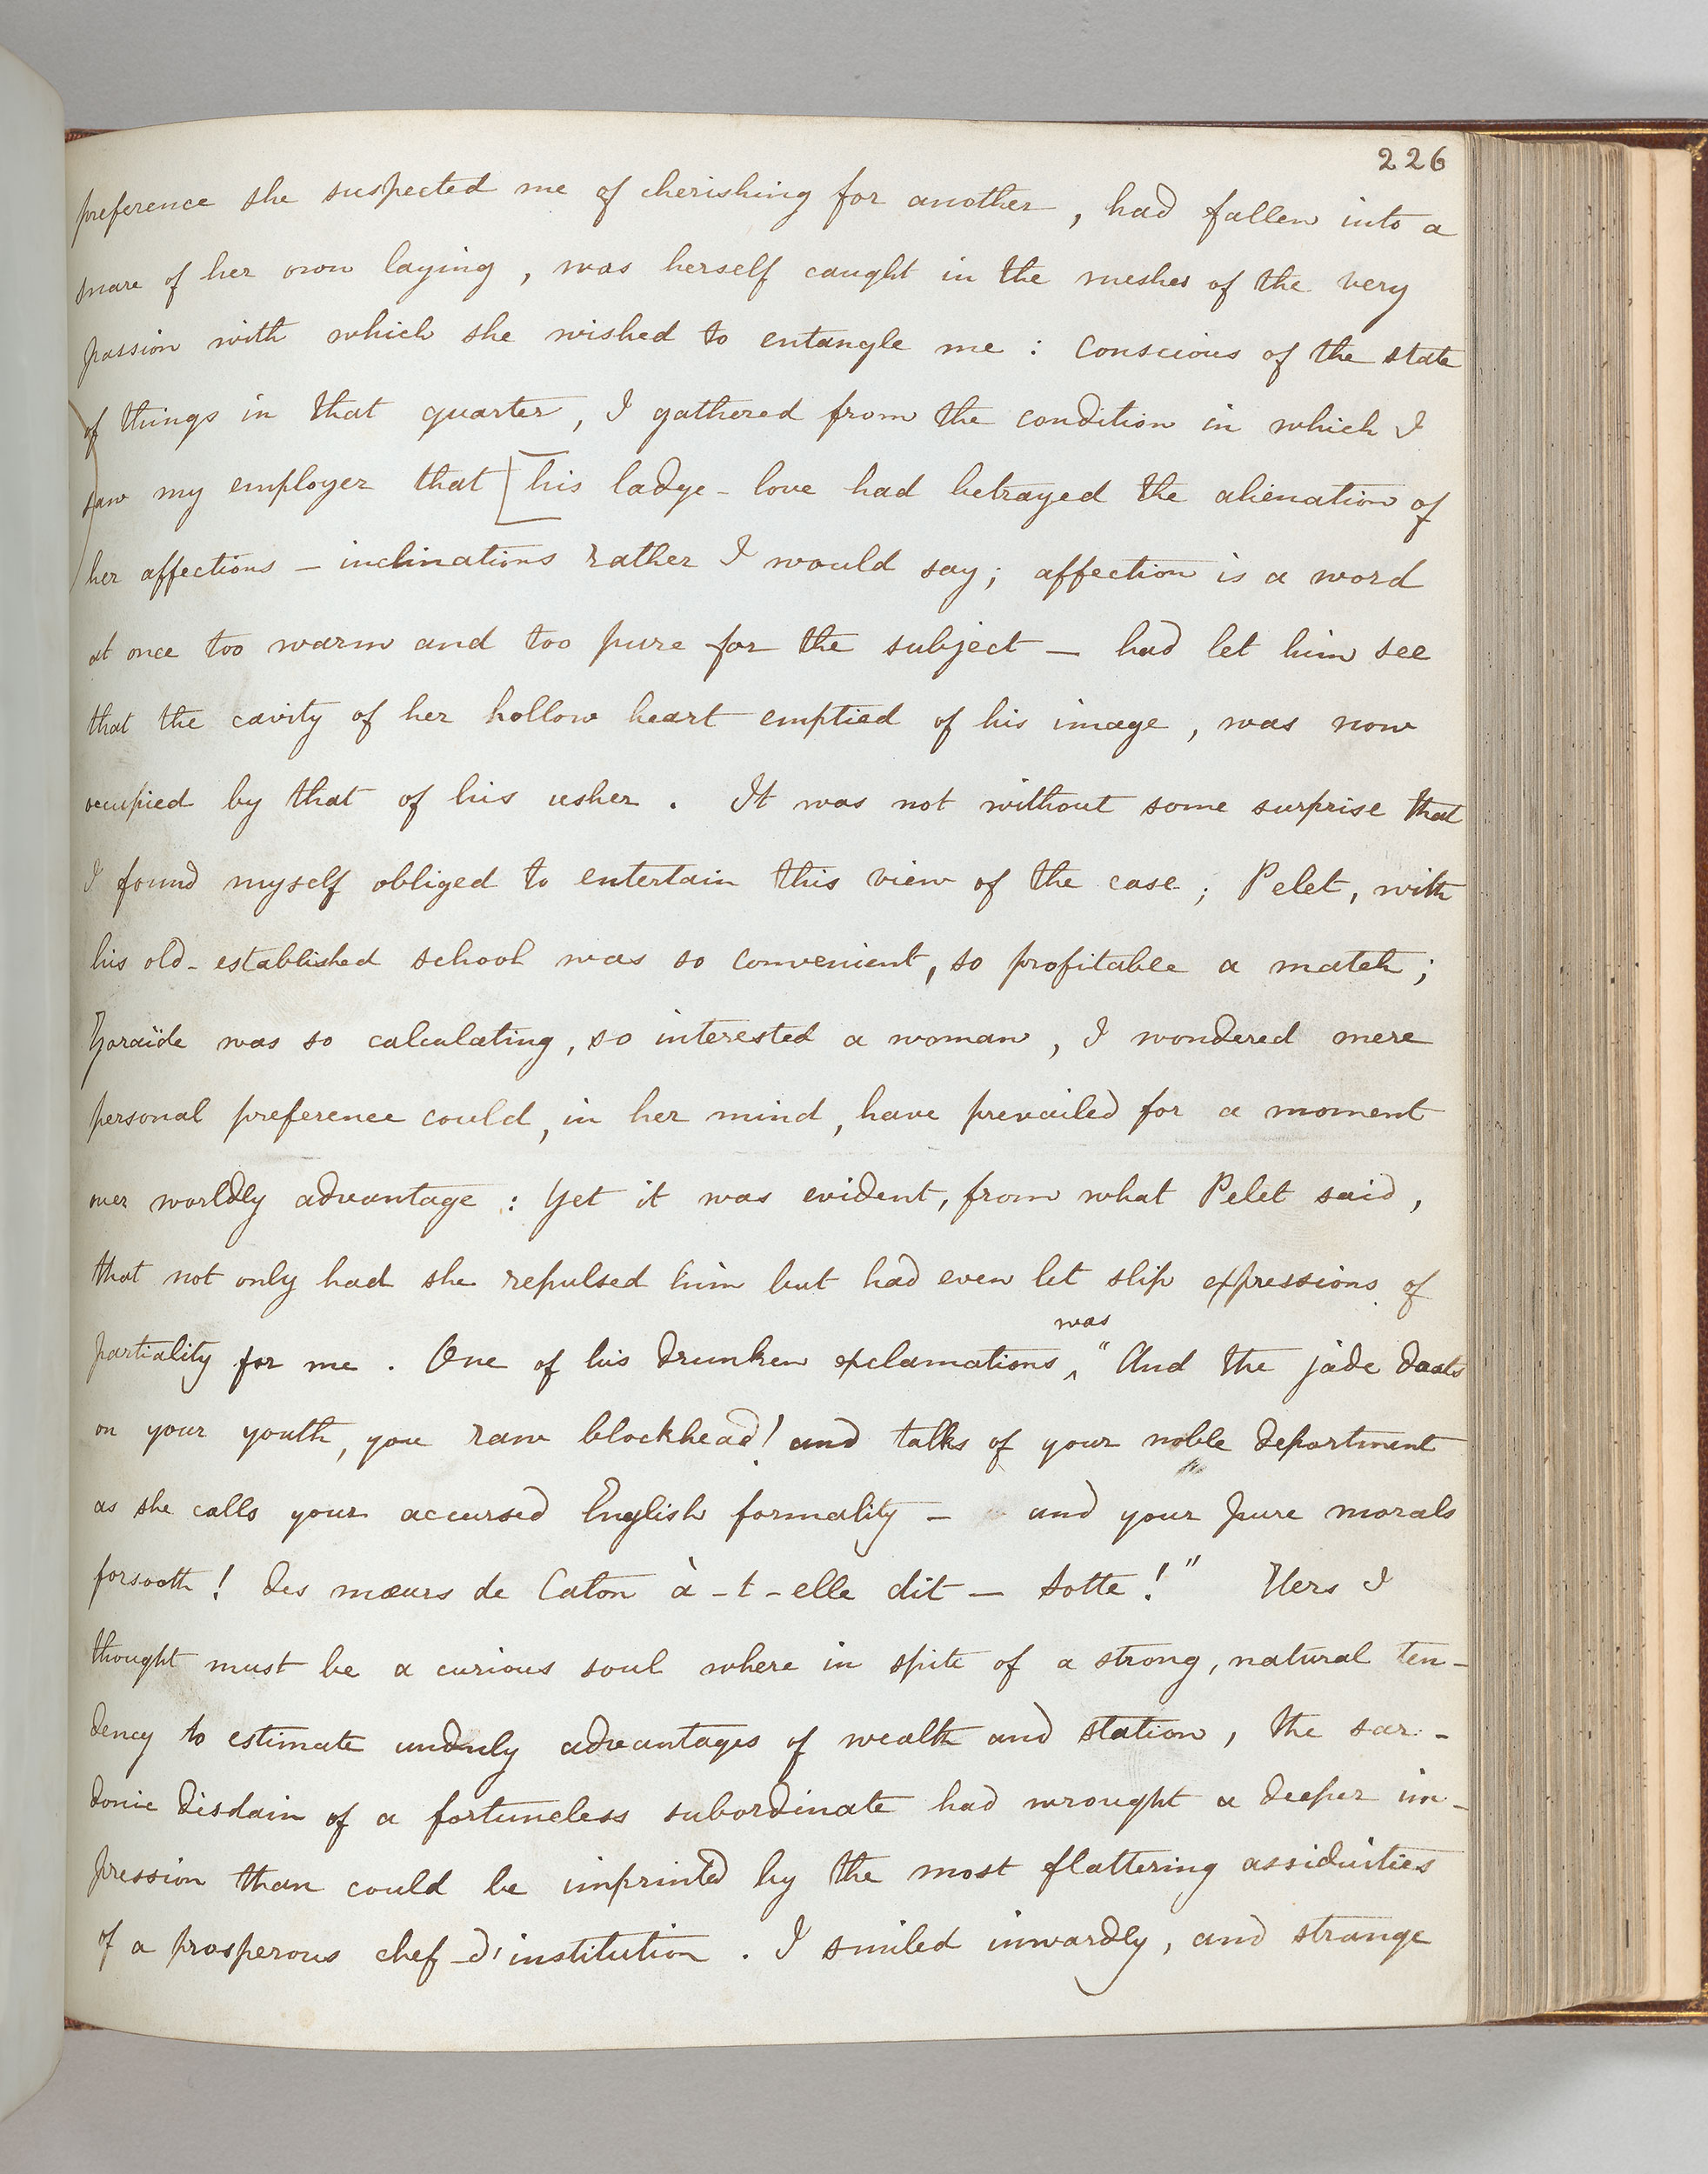 226
preference she suspected me of cherishing for another, had fallen into a
snare of her own laying, was herself caught in the meshes of the very
passion with which she wished to entangle me : Conscious of the state
of things in that quarter, I gathered from the condition in which I
saw my employer that [his ladye-love had betrayed the alienation of
her affections — inclinations rather I would say; affection is a word
at once too warm and too pure for the subject — had let him see
that the cavity of her hollow heart emptied of his image, was now
occupied by that of his usher. It was not without some surprise that
I found myself obliged to entertain this view of the case; Pelet, with
his old-established school was so convenient, so profitable a match;
Zoraïde was so calculating, so interested a woman, I wondered mere
personal preference could, in her mind, have prevailed for a moment
over worldly advantage : Yet it was evident, from what Pelet said,
that not only had she repulsed him but had even let slip expressions of
partiality for me. One of his drunken exclamations was, "And the jade doats
on your youth, you raw blockhead! and talks of your noble deportment
as she calls your accursed English formality — and your pure morals
forsooth! des mœurs de Caton à-t-elle dit — Sotte!" Hers I
thought must be a curious soul where in spite of a strong, natural ten-
dency to estimate unduly advantages of wealth and station, the sar-
donic disdain of a fortuneless subordinate had wrought a deeper im-
pression than could be imprinted by the most flattering assiduities
of a prosperous chef-d'institution. I smiled inwardly, and strange